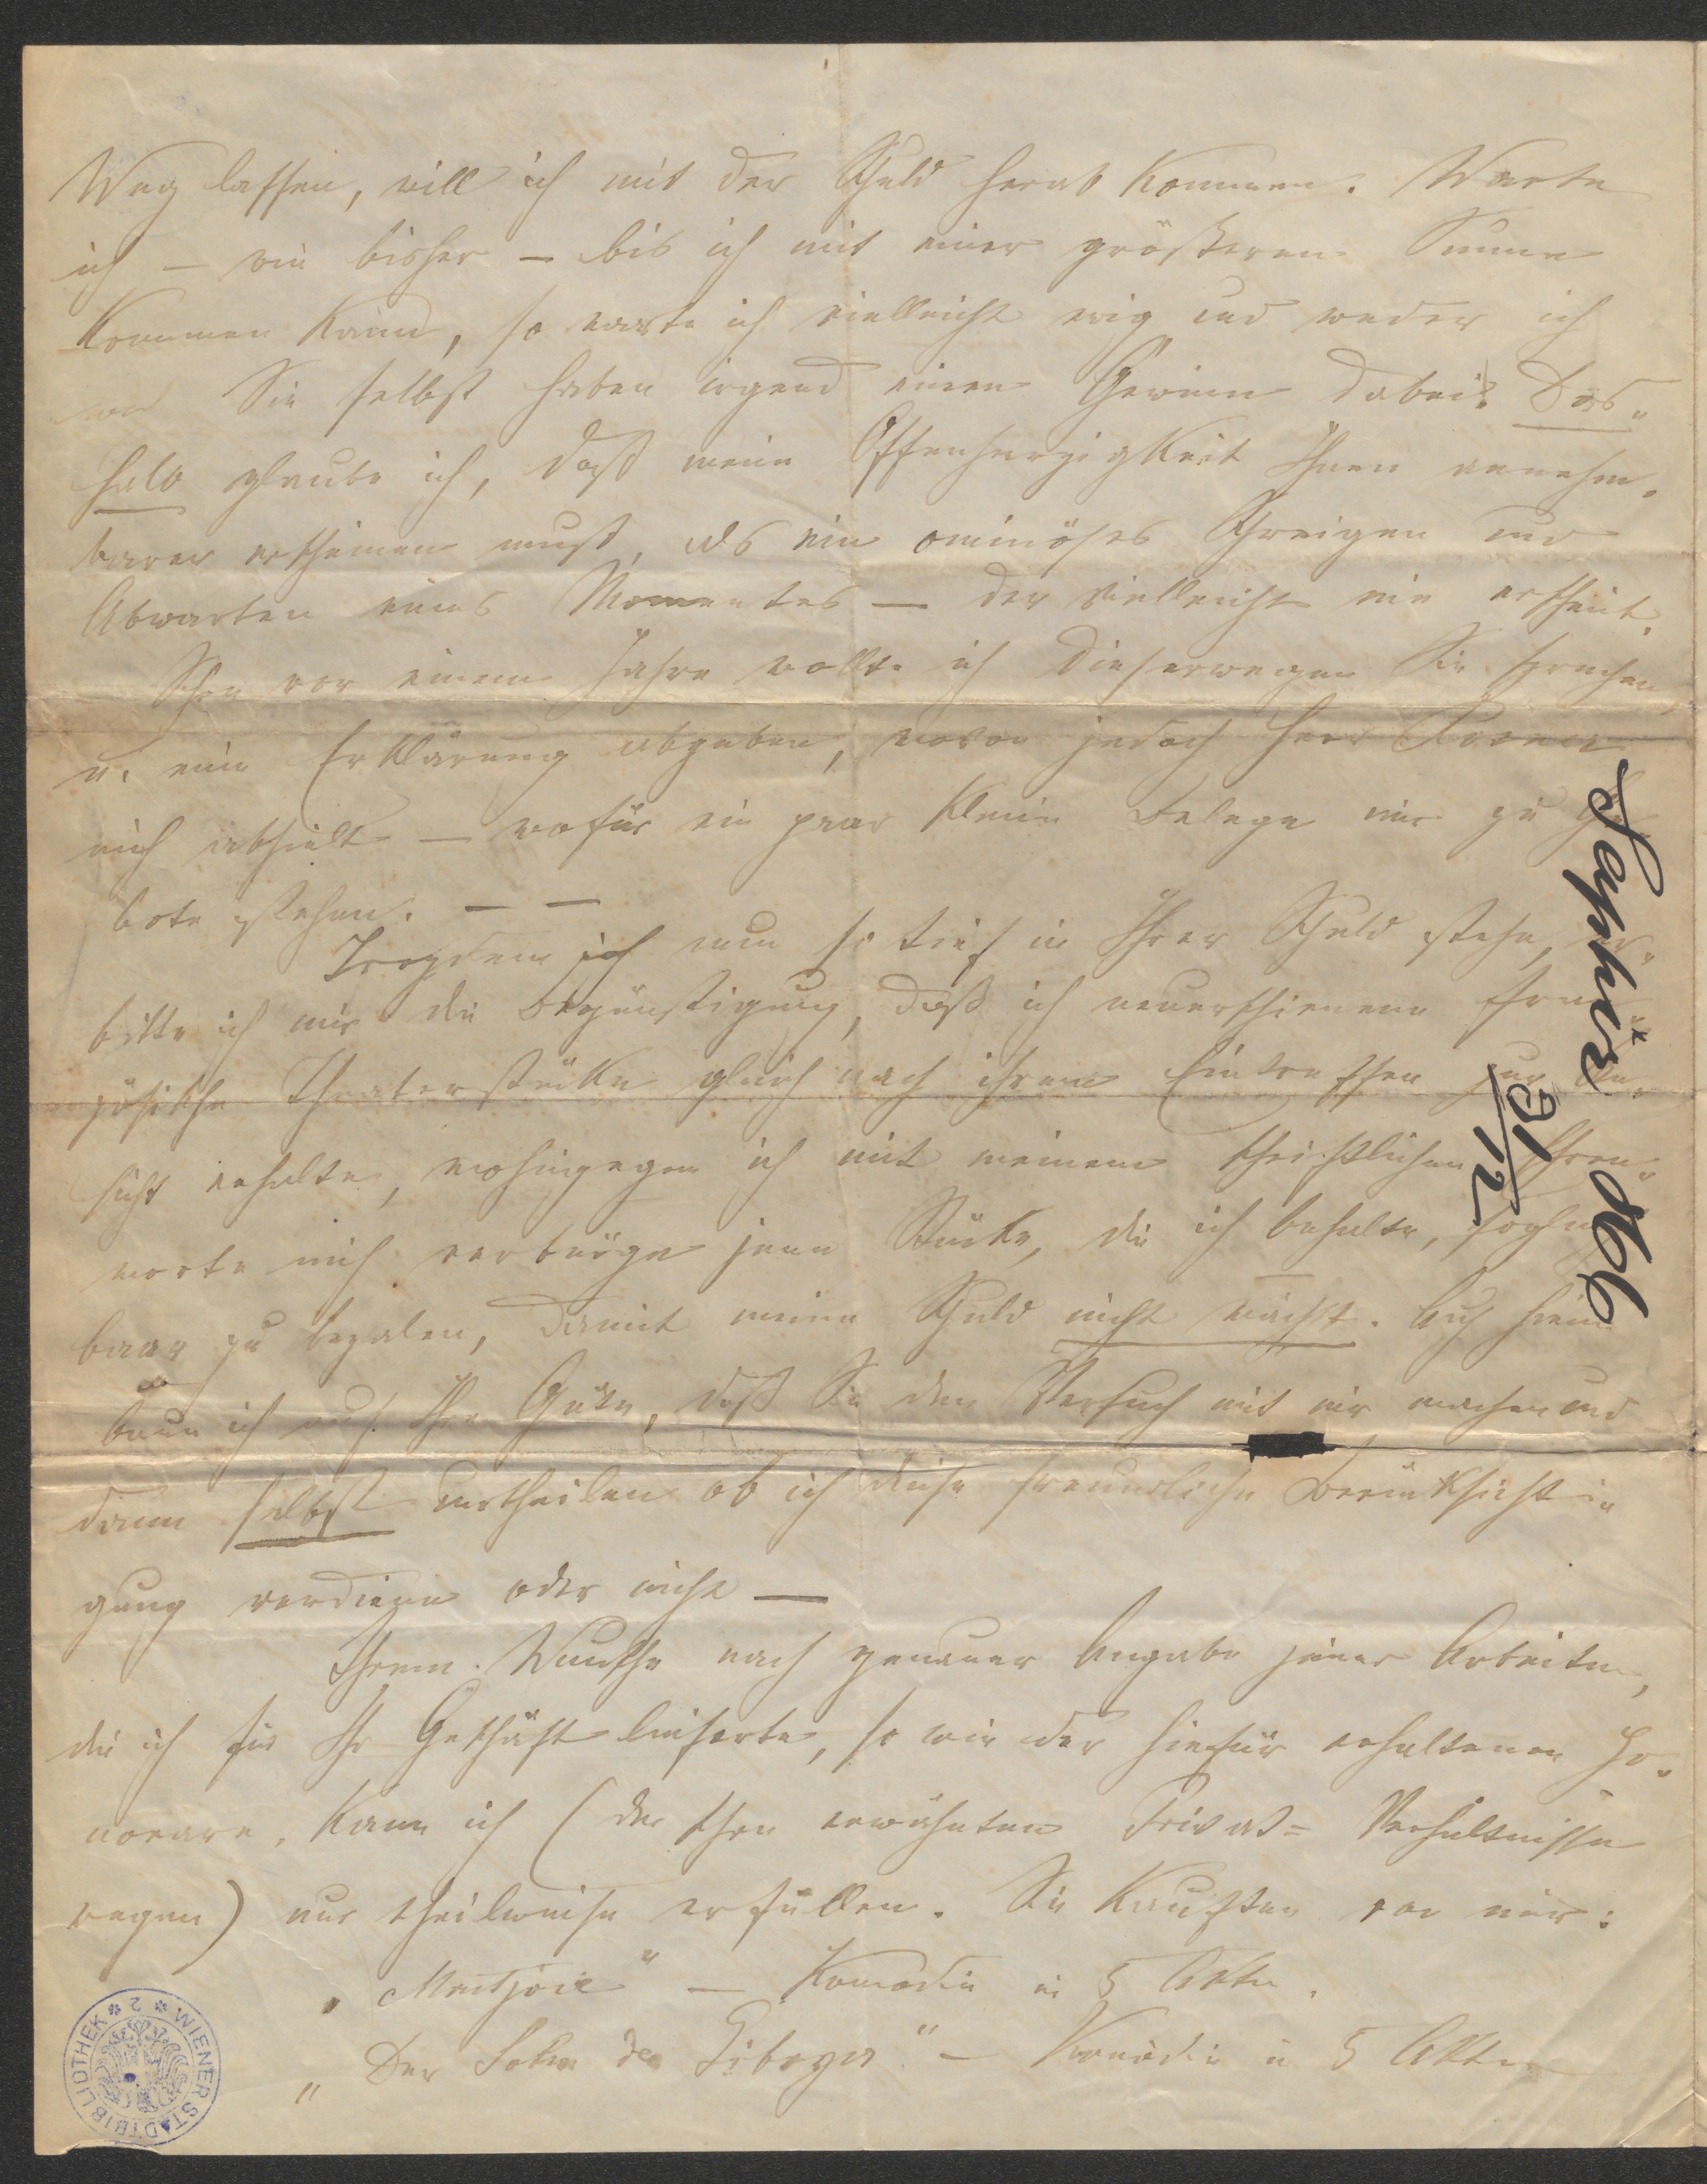 Weg lassen, will ich mit der Schuld herab kommen. Warte
ich – wie bisher – bis ich mit einer größeren Summe
kommen kann, so warte ich vielleicht ewig und weder ich
noch Sie selbst haben irgend einen Gewinn dabei. Des„
halb glaube ich, daß meine Offenherzigkeit Ihnen annehm„
barer erscheinen muß, als ein ominöses Schweigen und
Abwarten eines Momentes – der vielleicht nie erscheint.
Schon vor einem Jahre wollte ich dieserwegen Sie sprechen,
u. eine Erklärung abgeben, wovon jedoch Herr
mich abhielt – wofür ein paar kleine Belege mir zu Ge„
bote stehen. – –
Trozdem ich nun so tief in Ihrer Schuld stehe, er„
bitte ich mir die Begünstigung, daß ich neuerschienene fran„
zösische Theaterstücke gleich nach ihrem Eintreffen zur An„
sicht erhalte, wohingegen ich mit meinem christlichen Ehren„
worte mich verbürge jene Stücke, die ich behalte, sogleich
baar zu bezalen, damit meine Schuld nicht wächst. Auch hierin
baue ich auf Ihre Güte, daß Sie den Versuch mit mir machen und
dann selbst urtheilen ob ich diese freundliche Berücksichti„
gung verdiene oder nicht –
Ihrem Wunsche nach genauer Angabe jener Arbeiten,
die ich für Ihr Geschäft lieferte, so wie der hiefür erhaltenen Ho„
norare, kann ich (der schon erwähnten Privat= Verhältnisse
wegen) nur theilweise erfüllen. Sie kauften von mir:
„Montjoie" – Komödie in 5 Akten.
„Der Sohn des Giboyer" – Komödie in 5 Akten
Saphir 866
31/12
WIENER STADTBIBLIOTHEK * 2 *